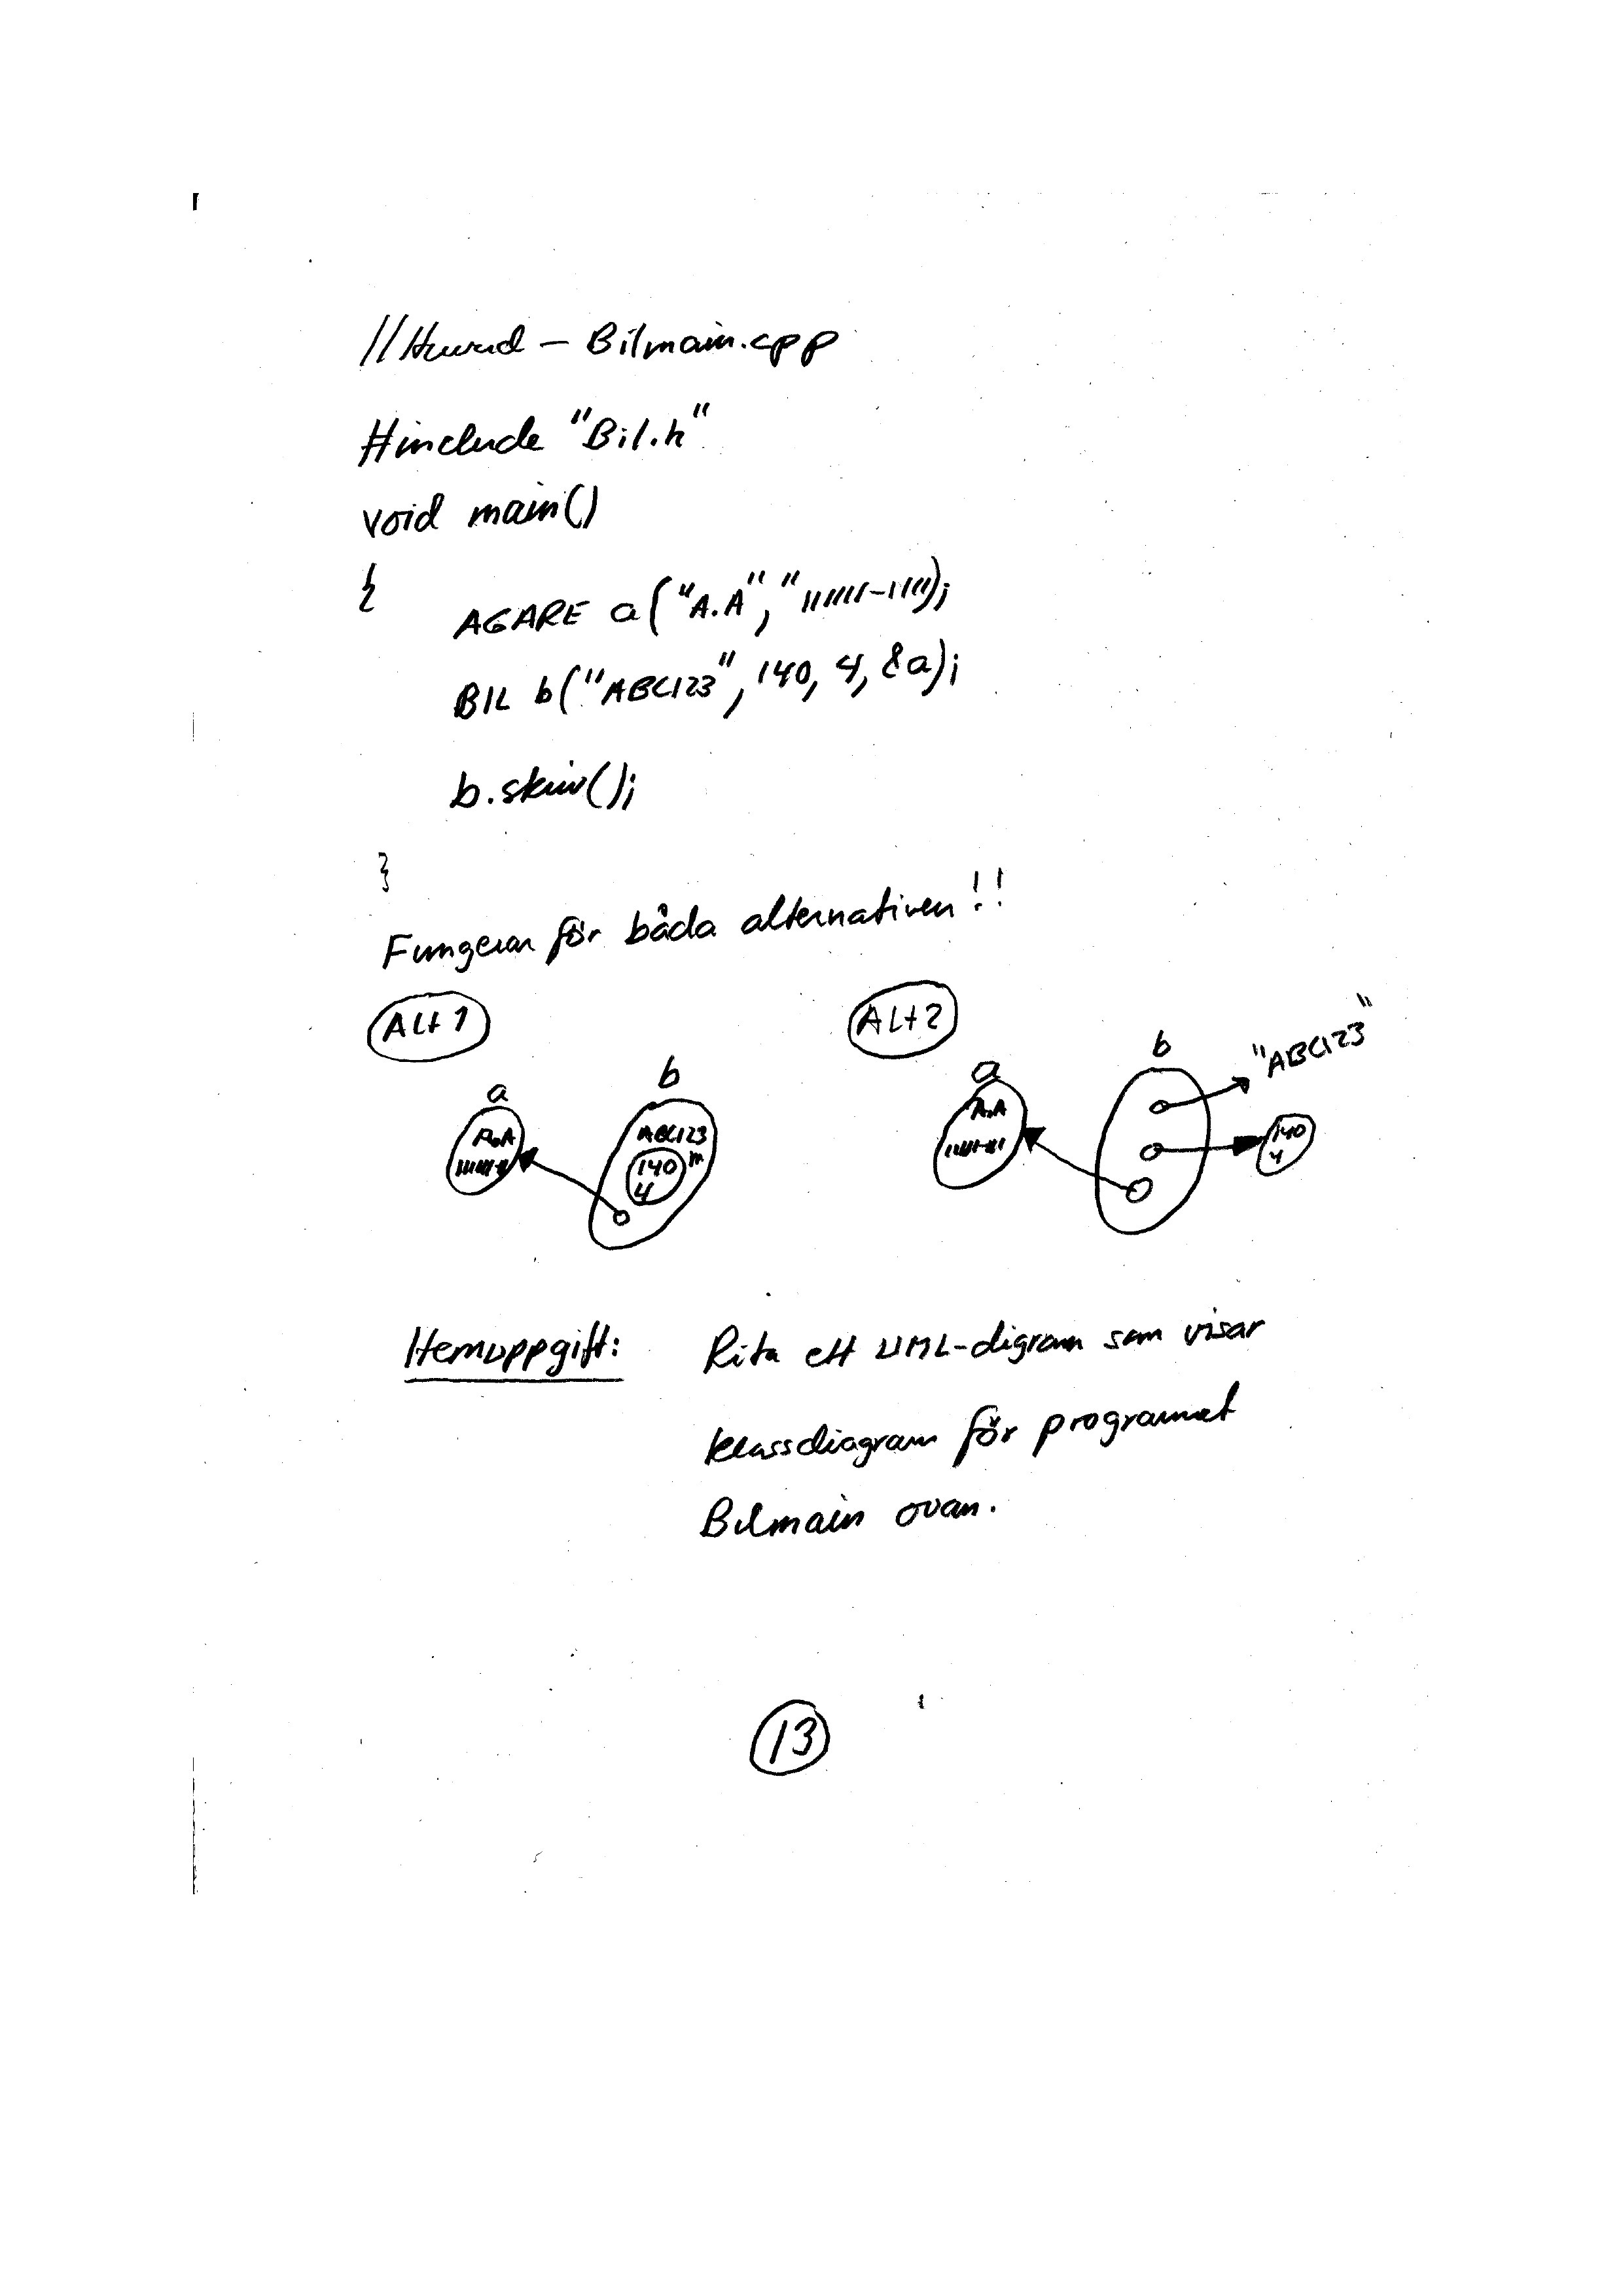 //Huvud – Bilmain.cpp
#include "Bil.h"
void main()
{
AGARE a("A.A", "111111-1111);
BIL b("ABC123", 140, 4, &a);
b.skriv();
}
Fungerar för båda alternativen!!
ALT 1
ALT 2
a
A.A
b
ABC123
140
4
m
a
A.A
b
"ABC123"
140
4
Hemuppgift: Rita ett UML-digram som visar
klassdiagram för programmet
Bilmain ovan.
13